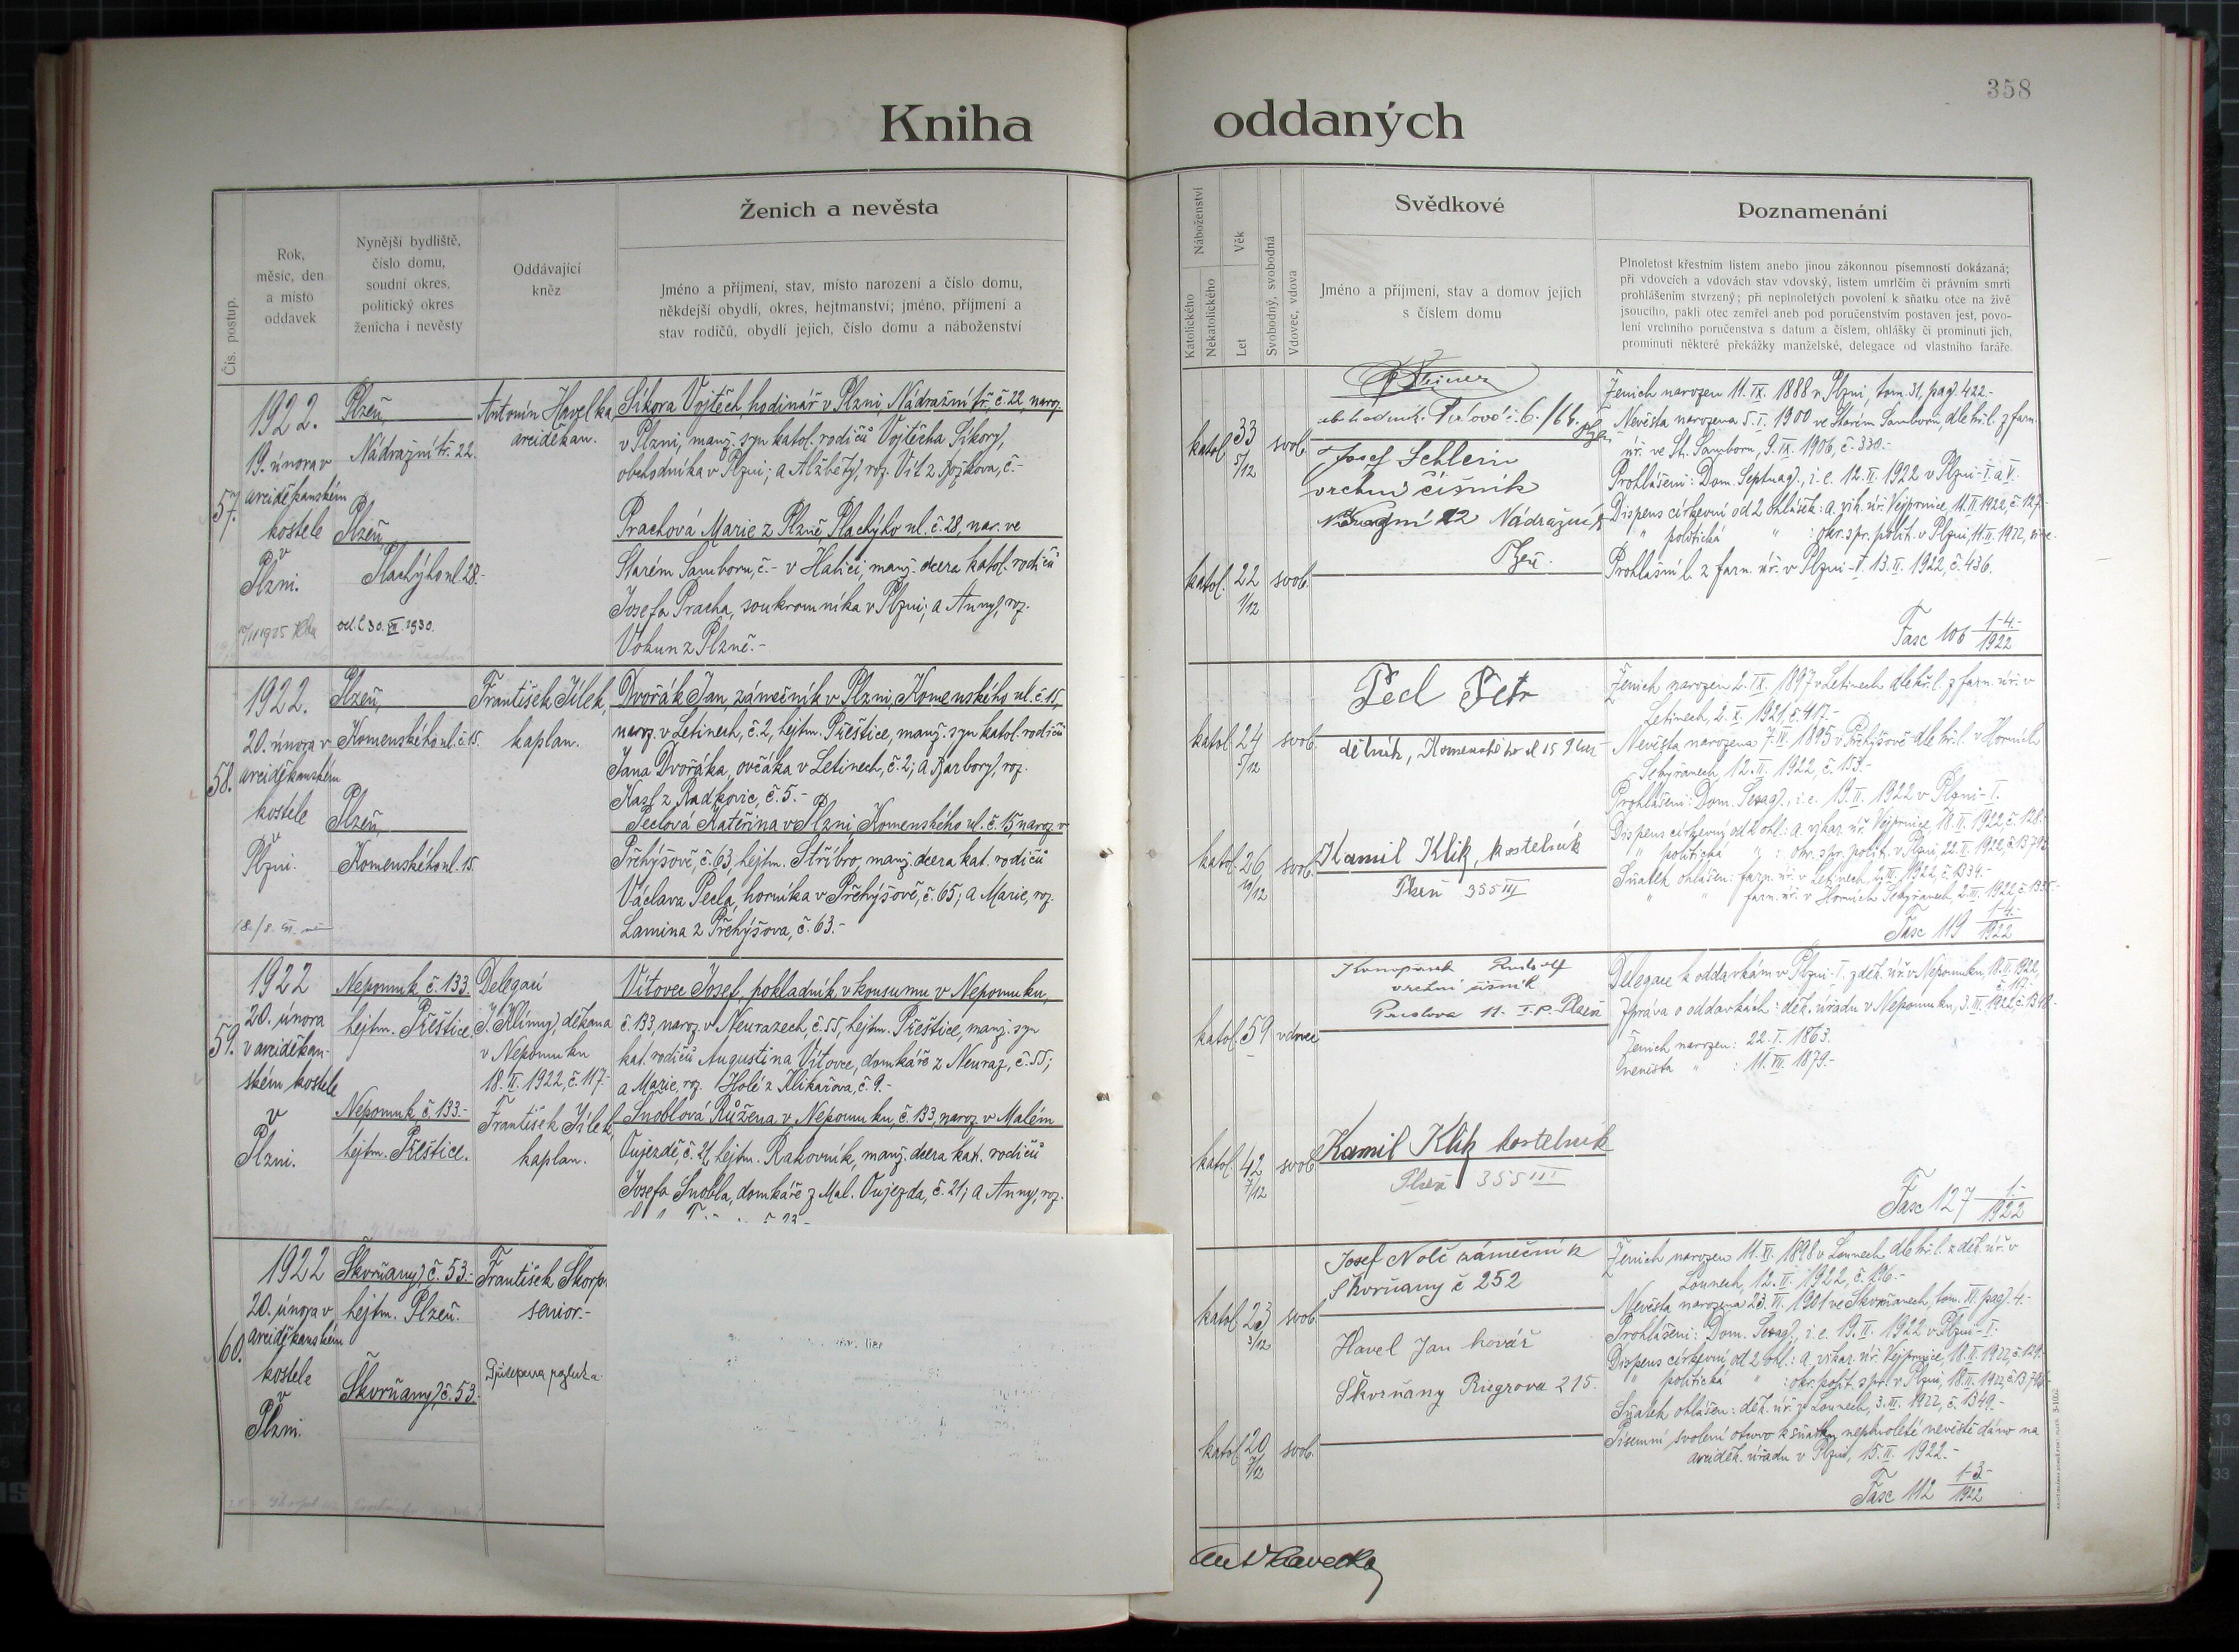 358
Kniha oddaných
Čís. postup.
Rok,
měsíc, den
a místo
oddavek
Nynější bydliště,
číslo domu,
soudní okres,
politický okres
ženicha i nevěsty
Oddávající
kněz
Ženich a nevěsta
Jméno a příjmení, stav, místo narození a číslo domu,
někdejší obydlí, okres, hejtmanství; jméno, příjmení a
stav rodičů, obydlí jejich, číslo domu a náboženství
Náboženství
Katolického
Nekatolického
Věk
Let
Svobodný, svobodná
Vdovec, vdova
Svědkové
Jméno a příjmení, stav a domov jejich
s číslem domu
Poznamenání
Plnoletost křestním listem anebo jinou zákonnou písemností dokázaná;
při vdovcích a vdovách stav vdovský, listem umrlčím či právním smrti
prohlášením stvrzený; při neplnoletých povolení k sňatku otce na živě
jsoucího, pakli otec zemřel aneb pod poručenstvím postaven jest, povo-
lení vrchního poručenstva s datum a číslem, ohlášky či prominutí jich,
prominutí některé překážky manželské, delegace od vlastního faráře.
57.
1922.
19. února v
arciděkanském
kostele
v
Plzni.
Plzeň,
Nádražní tř. 22.
Plzeň,
Plachýho ul. 28.-
Antonín Havelka,
arciděkan.
Sikora Vojtěch, hodinář v Plzni, Nádražní tř. č. 22, naroz.
v Plzni, manž. syn katol. rodičů Vojtěcha Sikory,
obchodníka v Plzni; a Alžběty, roz. Vít z
Prachová Marie z Plzně, Plachýho ul. č. 28, nar. ve
Starém Samboru, č.- v Haliči, manž. dcera katol. rodičů
Josefa Pracha, soukromníka v Plzni; a Anny, roz.
Vokun z Plzně.-
katol. 33 5/12 svob.
katol. 22 1/12 svob.
Josef Schlein
vrchní číšník
22 Nádražní
Plzeň.
Ženich narozen 11. IX. 1888 v Plzni, tom. 31, pag. 422.-
Nevěsta narozena 5. I. 1900 ve Starém Samboru, dle kř. l. z farn.
úř. ve St. Samboru, 9. IX. 1906, č. 330.-
Prohlášeni: Dom. Septuag., i. e. 12. II. 1922 v Plzni-I. a V.
Dispens církevní od 2 ohlášek: a. vik. úř. Vejprnice, 11. II. 1922, č. 127.-
" politická " : okr. spr. polit. v Plzni, 11. II. 1922,
Prohlašní l. z farn. úř. v Plzni-V. 13. II. 1922, č. 436.
Fasc 106 1-4.-/1922
58.
1922.
20. února v
arciděkanském
kostele
v
Plzni.
Plzeň,
Komenského ul. č. 15.
Plzeň,
Komenského ul. 15.
František Jílek,
kaplan.
Dvořák Jan, zámečník v Plzni, Komenského ul. č. 15,
naroz. v Letinech, č. 2, hejtm. Přeštice, manž. syn katol. rodičů
Jana Dvořáka, ovčáka v Letinech, č. 2; a Barbory, roz.
z Radkovic, č. 5.-
Peclová Kateřina v Plzni, Komenského ul. č. 15, naroz. v
Přehýšově, č. 63, hejtm. Stříbro, manž. dcera kat. rodičů
Václava Pecla, horníka v Přehýšově, č. 65; a Marie, roz.
Lamina z Přehýšova, č. 63.-
katol. 24 5/12 svob.
katol. 26 10/12 svob.
Pecl Petr
dělník, Komenského ul 15
Kamil Klik, kostelník
Plzeň 355 III
Ženich narozen 2. IX. 1897 v Letinech dle kř. l. z farn. úř. v
Letinech, 2. X. 1921, č. 417.-
Nevěsta narozena 7. IV. 1895 v Přehýšově dle kř. l. v Horních
Sekyřanech, 12. II. 1922, č. 153.-
Prohlášeni: Dom. Sexag., i. e. 19. II. 1922 v Plzni-I.
Dispens církevní od 2 ohl.: a. vikar. úř. Vejprnice, 18. II. 1922, č. 128.-
" politická " : okr. spr. polit. v Plzni, 22. II. 1922,
Sňatek ohlášen: farn. úř. v Letinech, 2. III. 1922, č. 1334.-
" " farn. úř. v Horních Sekyřanech, 2. III. 1922, č. 1335.-
Fasc 119 1-4.-/1922
59.
1922
20. února
v arciděkan-
ském kostele
v
Plzni.
Nepomuk, č. 133.
hejtm. Přeštice.
Nepomuk, č. 133.-
hejtm. Přeštice.
Delegací
J. Klímy, děkana
v Nepomuku
18. II. 1922, č. 117.-
František Jílek,
kaplan.
Vítovec Josef, pokladník v konsumu v Nepomuku,
č. 133, naroz. v Neurazech, č. 55, hejtm. Přeštice, manž. syn
kat. rodičů Augustina Vítovce, domkáře z Neuraz, č. 55;
a Marie, roz. Holé z Klikařova, č. 9.-
Šnoblová Růžena v Nepomuku, č. 133, naroz. v Malém
Oujezdě, č. 21, hejtm. Rakovník, manž. dcera kat. rodičů
Josefa Šnobla, domkáře z Mal. Oujezda, č. 21; a Anny, roz.
katol. 59 vdovec
katol. 42 7/12 svob.
Konopásek Rudolf
vrchní číšník
11. I. p. Plzeň
Kamil Klik kostelník
Plzeň 355 III
Delegace k oddavkám v Plzni-I. z děk. úř. v Nepomuku, 18. II. 1922,
č. 117.-
Zpráva o oddavkách: děk. úřadu v Nepomuku, 3. III. 1922,
Ženich narozen: 22. I. 1863.
nevěsta " : 11. VII. 1879.-
Fasc 127 1.-/1922
60.
1922
20. února v
arciděkanském
kostele
v
Plzni.
Škvrňany, č. 53.-
hejtm. Plzeň.
Škvrňany, č. 53.
František Škorp
senior.-
katol. 23 3/12 svob.
katol. 20 7/12 svob.
Josef Nolč zámečník
Skvrňany č 252
Havel Jan kovář
Škvrňany Riegrova 215.
Ženich narozen 11. XI. 1898 v Lounech dle kř. l. z děk. úř. v
Lounech, 12. II. 1922, č. 196.-
Nevěsta narozena 23. VI. 1901 ve Skvrňanech, tom. XI. pag. 4.-
Prohlášeni: Dom. Sexag., i. e. 19. II. 1922 v Plzni-I.
Dispens církevní od 2 ohl.: a. vikar. úř. Vejprnice, 18. II. 1922, č. 129.-
" politická " : okr. polit. spr. v Plzni, 18. II. 1922,
Sňatek ohlášen: děk. úř. v Lounech, 3. III. 1922, č. 1349.-
Písemní svolení otcovo k sňatku neplnoleté nevěstě dáno na
arciděk. úřadu v Plzni, 15. II. 1922.-
Fasc 112 1-3.-/1922